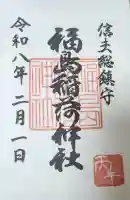 信夫総鎮守
福島稲荷神社
令和八年二月一日
丙午